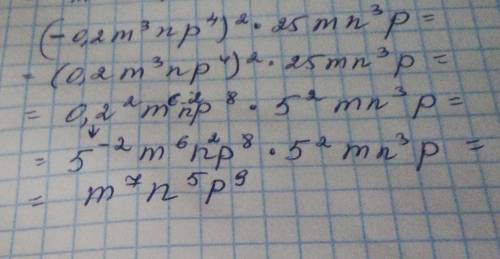 (-0,2m³np⁴)²·25mn³p=
-(0,2m³np⁴)²·25mn³p=
=0,2²m⁶n²p⁸·5²mn³p=
=5⁻²m⁶n²p⁸·5²mn³p=
=m⁷n⁵p⁹